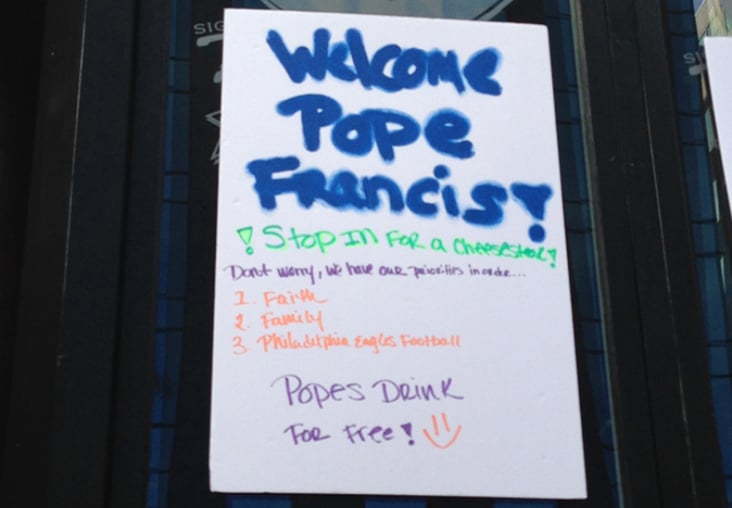 Welcome
Pope
Francis!
! Stop In For a Cheesesteak!
Don't worry, we have our priorities in order...
1. Faith
2. Family
3. Philadelphia Eagles Football
Popes Drink
For Free!